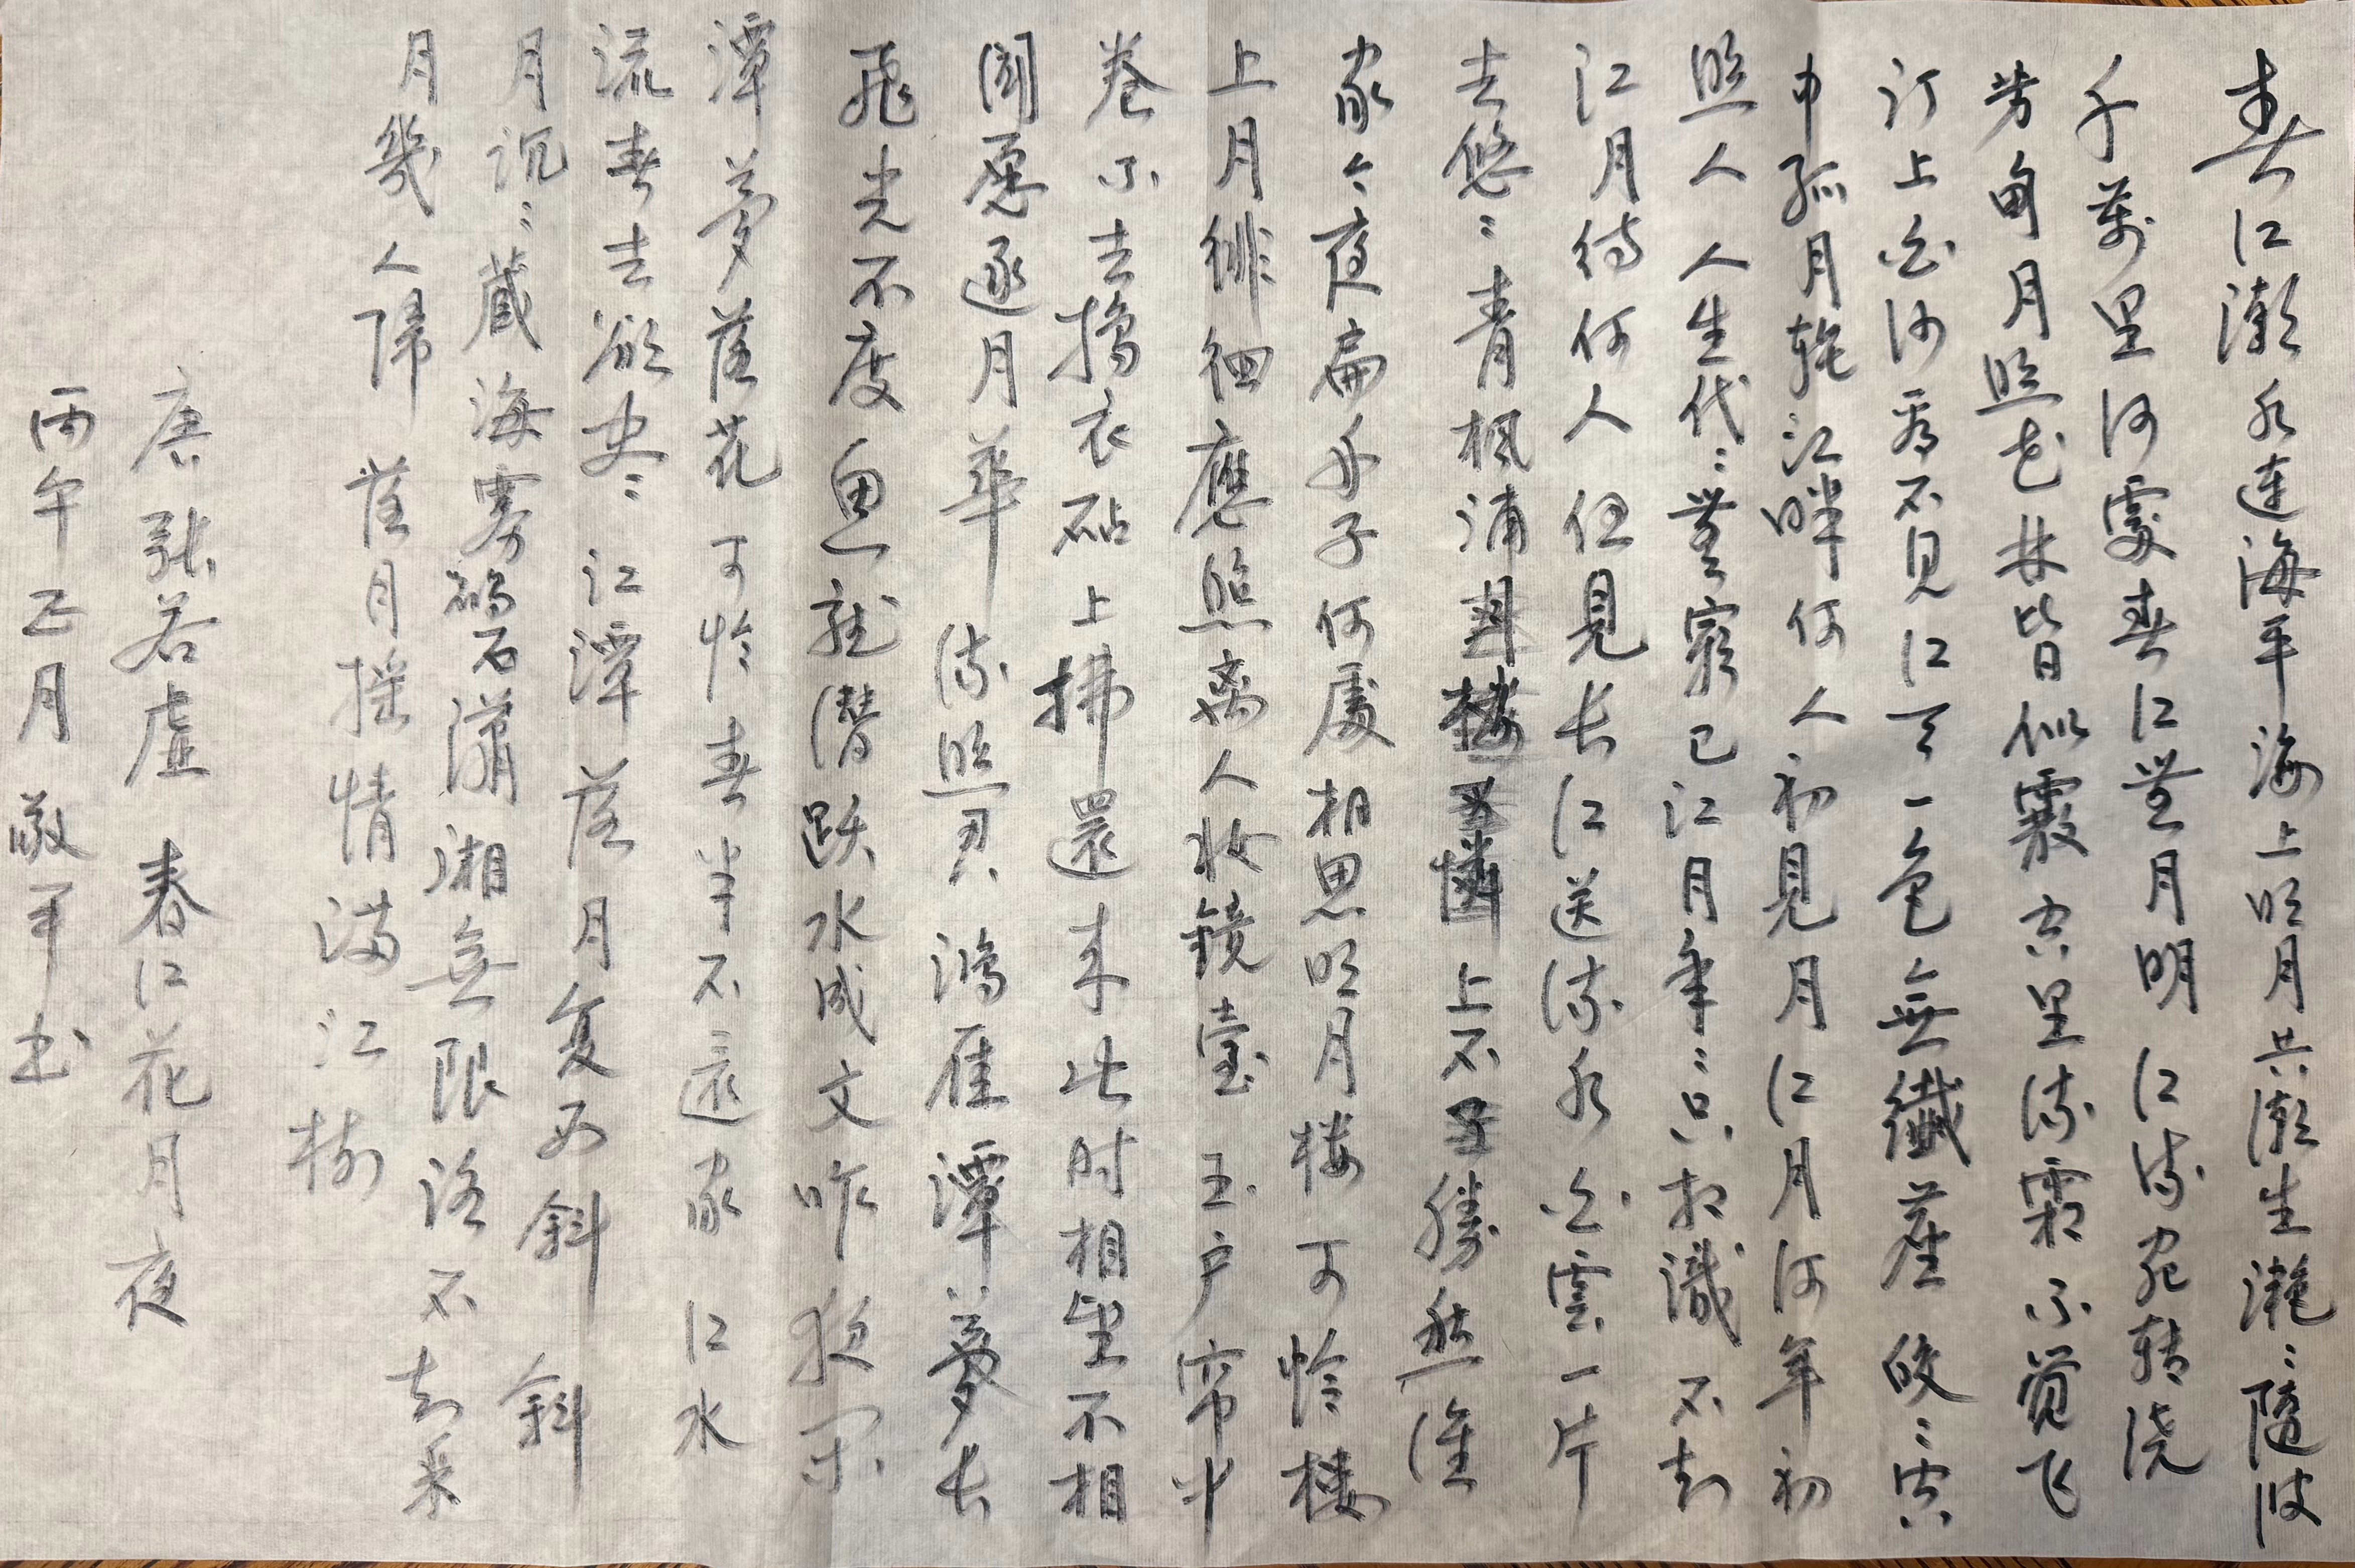 春江潮水連海平海上明月共潮生灩〻隨波
千萬里何處春江無月明江流宛转浇
芳甸月照花林皆似霰空里流霜不觉飞
汀上白沙看不見江天一色無纖塵皎〻空
中孤月轮江畔何人初見月江月何年初
照人人生代〻無窮已江月年〻只相識不知
江月待何人但見长江送流水白雲一片
去悠〻青枫浦上不勝愁誰
家今夜扁舟子何處相思明月楼可怜楼
上月徘徊應照离人妝鏡臺玉户帘中
卷不去擣衣砧上拂還来此时相望不相
聞愿逐月華流照君鴻雁潭夢长
飛光不度魚龍潜跃水成文昨夜闲
潭夢落花可怜春半不還家江水
流春去欲尽江潭落月复西斜斜
月沉〻藏海雾碣石瀟湘無限路不知乘
月幾人歸落月摇情满江树
唐張若虚春江花月夜
丙午正月敬平书